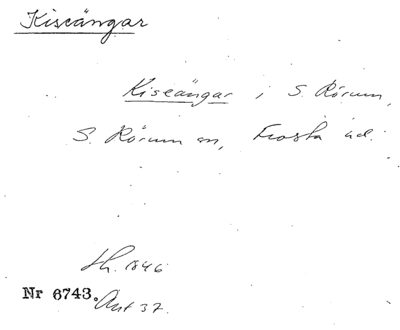 Kiseängar
Kiseängar i S. Rörum,
S. Rörum sn, Frosta hd.
Lh. 1846
Nr 6743. Ant 37.